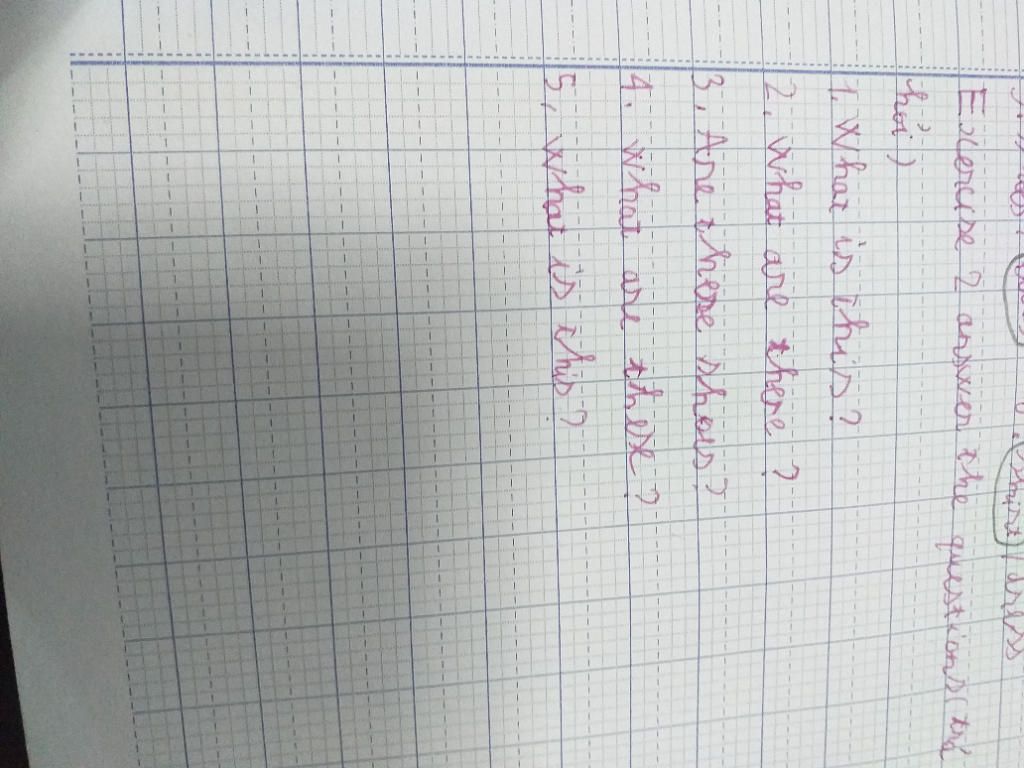 Exencise 2 answer the questions ( trả
hỏi )
1. What is this?
2. What are there?
3. Are there shoes?
4. What are they?
5. What is this?